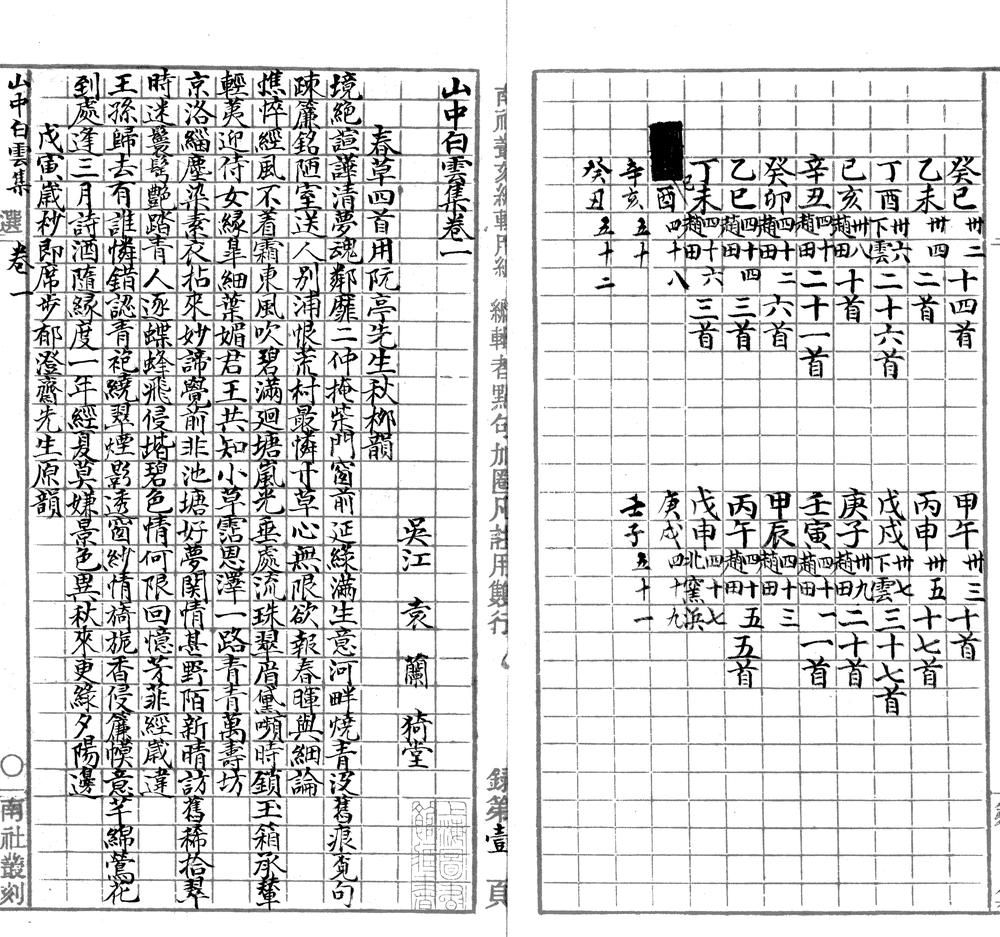 癸巳 卅二 十四首
乙未 卅四 二首
丁酉 卅六 下雲 二十六首
己亥 卅八 趙田 十首
辛丑 四十 趙田 二十一首
癸卯 四十二 趙田 六首
乙巳 四十四 趙田 三首
丁未 四十六 趙田 三首
己酉 四十八
辛亥 五十
癸丑 五十二
甲午 卅三 十首
丙申 卅五 十七首
戊戌 卅七 下雲 三十七首
庚子 卅九 趙田 二十首
壬寅 四十一 趙田 一首
甲辰 四十三 趙田
丙午 四十五 趙田 五首
戊申 四十七 北窑浜
庚戌 四十九
壬子 五十一
錄第壹頁
山中白雲集卷一
吳江 袁 蘭 猗堂
春草四首用阮亭先生秋柳韻
境絕諠譁清夢魂鄰靡二仲掩柴門窗前延綠滿生意河畔燒青沒舊痕覓句
疎簾銘陋室送人別浦恨荒村最憐寸草心無限欲報春暉與細論
憔悴經風不着霜東風吹碧滿廻塘嵐光垂處流珠翠眉黛嚬時鎖玉箱承輦
輕荑迎侍女緣皐細葉媚君王共知小草霑恩澤一路青青萬壽坊
京洛緇塵染素衣拈來妙諦覺前非池塘好夢関情甚野陌新晴訪舊稀拾翠
時迷鬟髩艷踏青人逐蝶蜂飛侵堦碧色情何限回憶芳菲經歲違
王孫歸去有誰憐錯認青袍繞翠煙影透窗紗情旖旎香侵簾幙意芊綿鶯花
到處逢三月詩酒隨緣度一年經夏莫嫌景色異秋來更綠夕陽邊
戊寅歲杪即席步郁澄齋先生原韻
山中白雲集 選 卷一
〇 南社叢刻